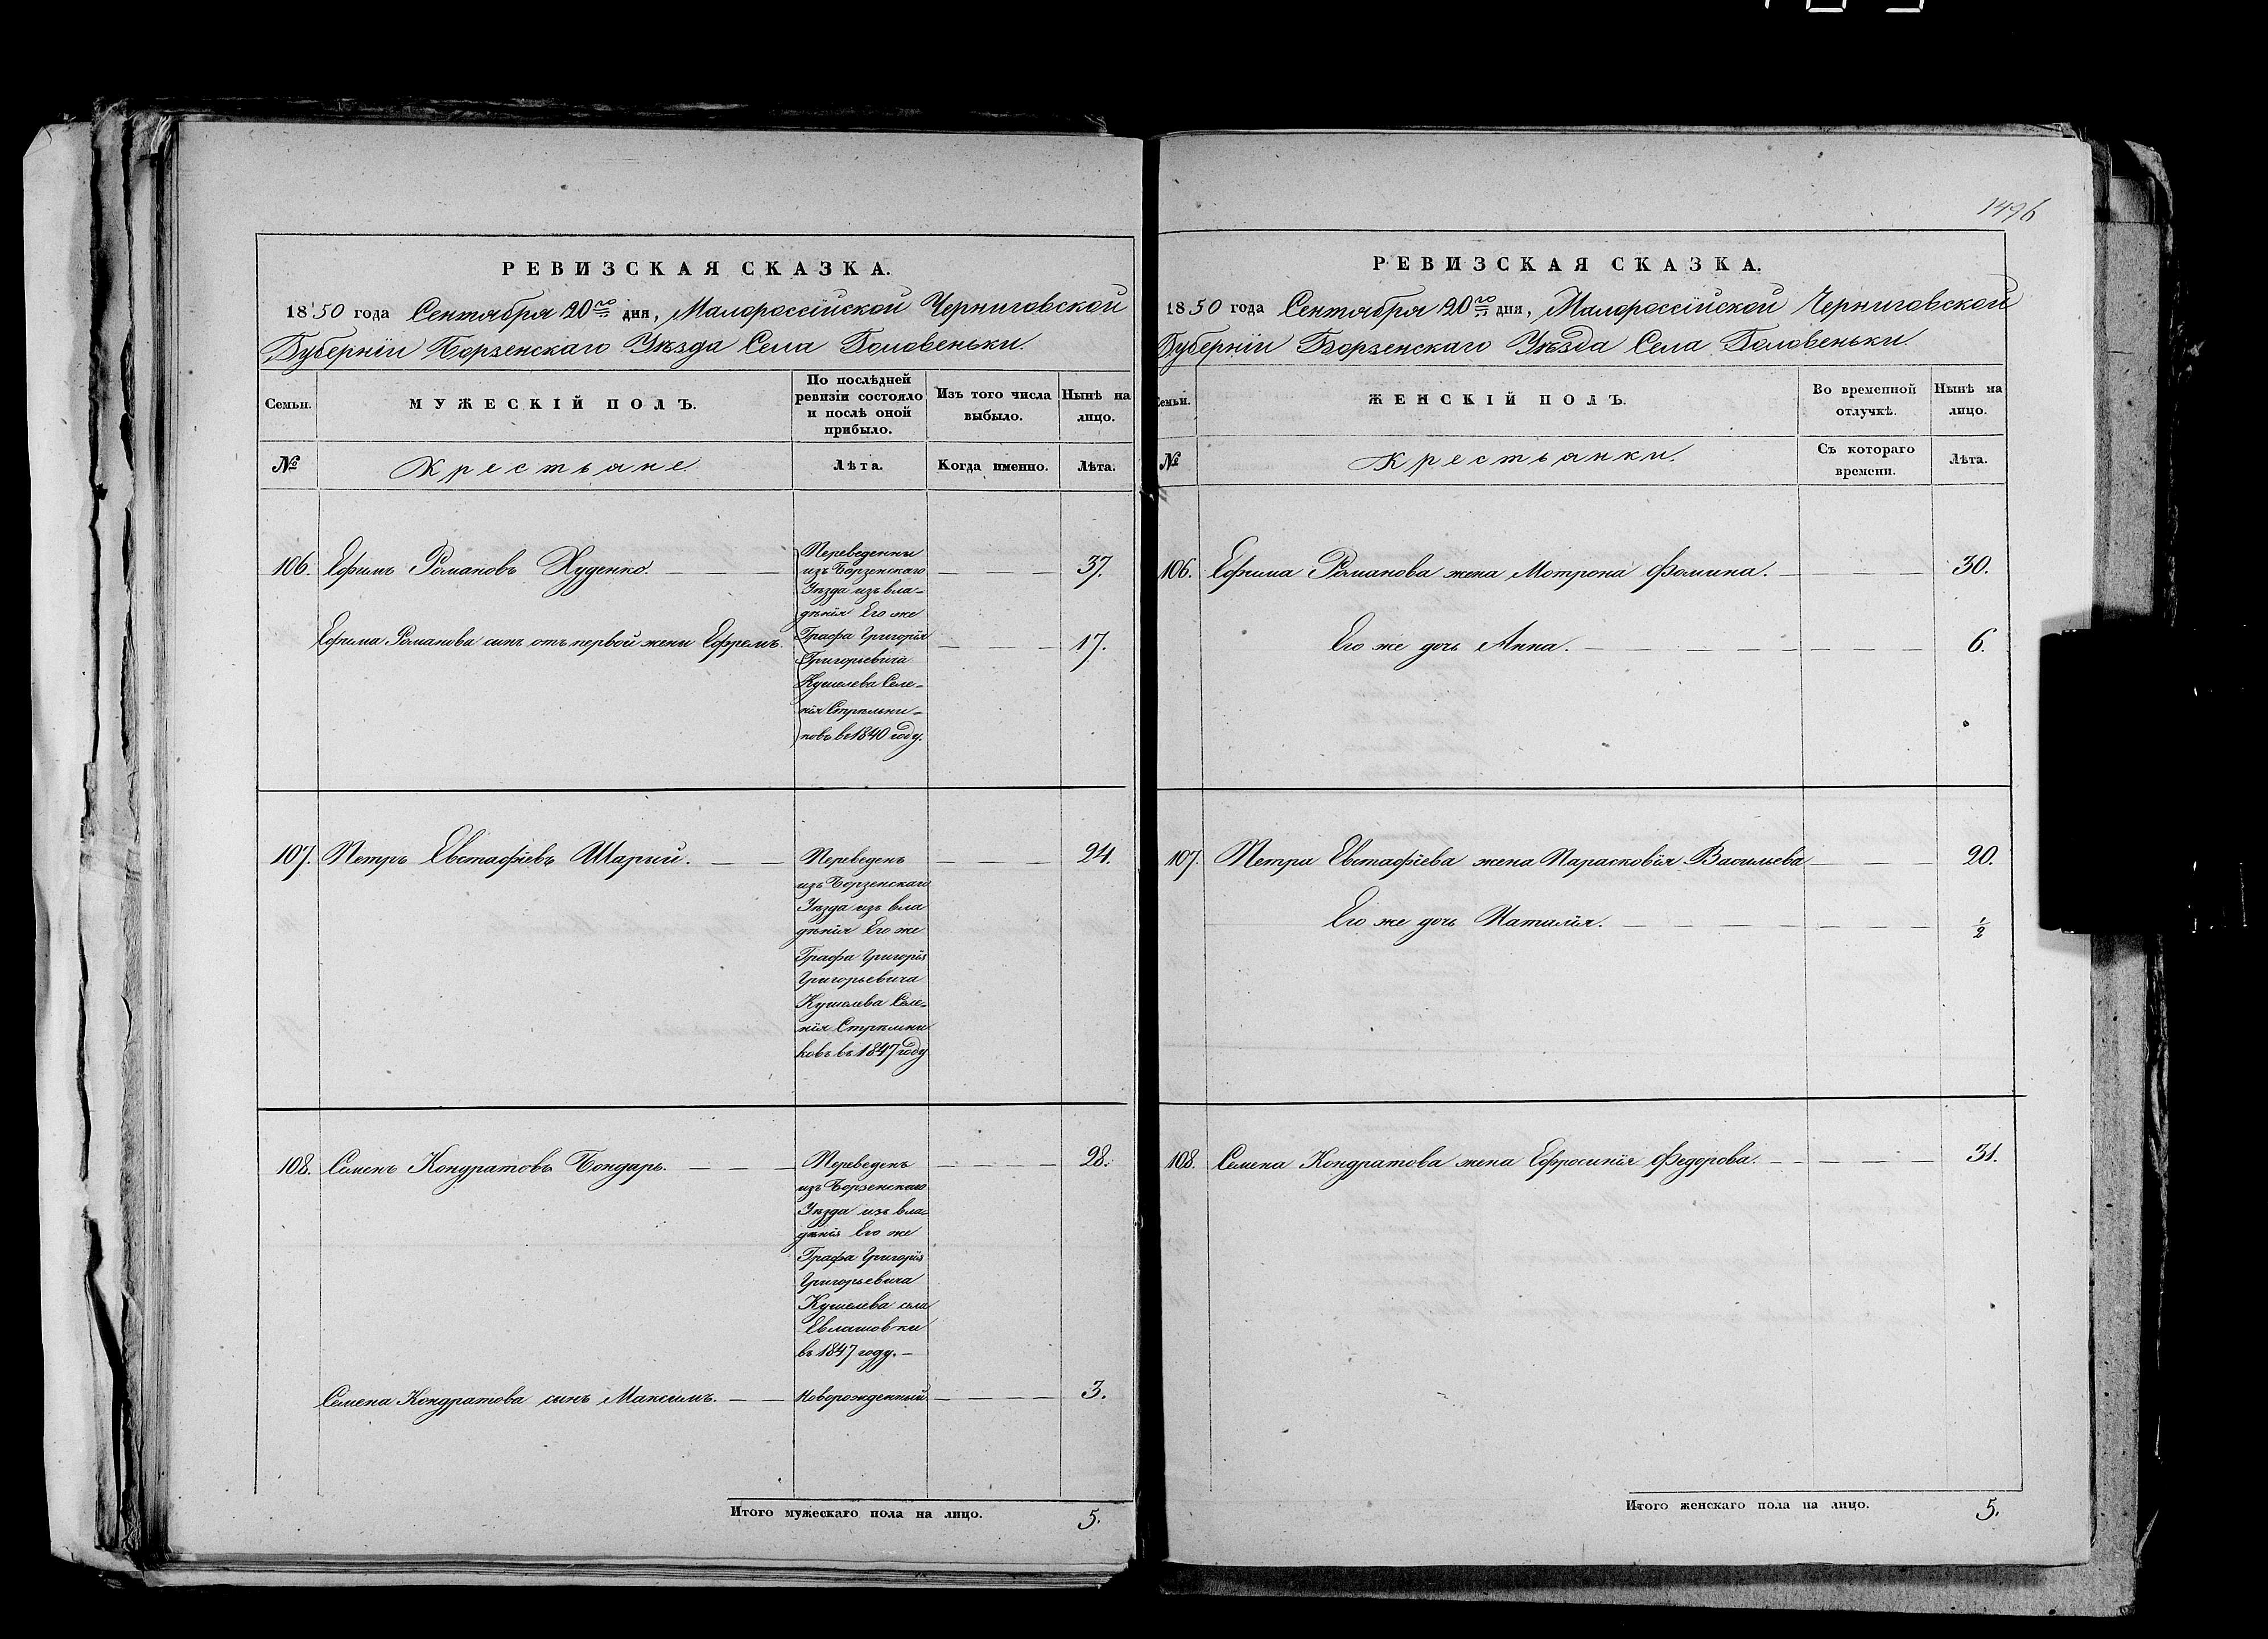 РЕВИЗСКАЯ СКАЗКА.
1850 года Сентября 20го дня, Малороссійской Черниговской
Губерніи Борзенскаго Уѣзда Села Головеньки.
Семьи.
МУЖЕСКІЙ ПОЛЪ.
По послѣдней
ревизіи состояло
и послѣ оной
прибыло.
Изъ того числа
выбыло.
Нынѣ на
лицо.
№
Крестьяне
Лѣта.
Когда именно.
Лѣта.
106. Ефимъ Романовъ Худенко — — 37.
Переведены
изъ Борзенскаго
Уѣзда изъ вла-
дѣнія Его же
Графа Григорія
Григорьевича
Кушелева Селе-
нія Стрѣльни-
ковъ въ 1840 году.
Ефима Романова сынъ отъ первой жены Ефремъ. — — — 17.
107. Петръ Евстафіевъ Шарый. — — 24.
Переведенъ
изъ Борзенскаго
Уѣзда изъ вла
дѣнія Его же
Графа Григорія
Григорьевича
Кушелева Селе-
нія Стрѣльни
ковъ въ 1847 году
108. Семенъ Кондратовъ Бондарь. — — — 28.
Переведенъ
изъ Борзенскаго
Уѣзда изъ вла
дѣнія Его же
Графа Григорія
Григорьевича
Кушелева села
Евлашовки
въ 1847 году. —
Семена Кондратова сынъ Максимъ. — — Новорожденный — — — — 3.
Итого мужескаго пола на лицо. 5.
1496
РЕВИЗСКАЯ СКАЗКА.
1850 года Сентября 20го дня, Малороссійской Черниговской
Губерніи Борзенскаго Уѣзда Села Головеньки.
Семьи.
ЖЕНСКІЙ ПОЛЪ.
Во временной
отлучкѣ.
Нынѣ на
лицо.
№
Крестьянки.
Съ котораго
времени.
Лѣта.
106. Ефима Романова жена Мотрона Фомина. — — — — 30.
Его же дочь Анна. — — — — — — — — 6.
107. Петра Евстафіева жена Парасковія Васильева — — — 20.
Его же дочь Наталія. — — — — — — — — 1/2
108. Семена Кондратова жена Ефросинія Федорова. — — — — — 31.
Итого женскаго пола на лицо. 5.